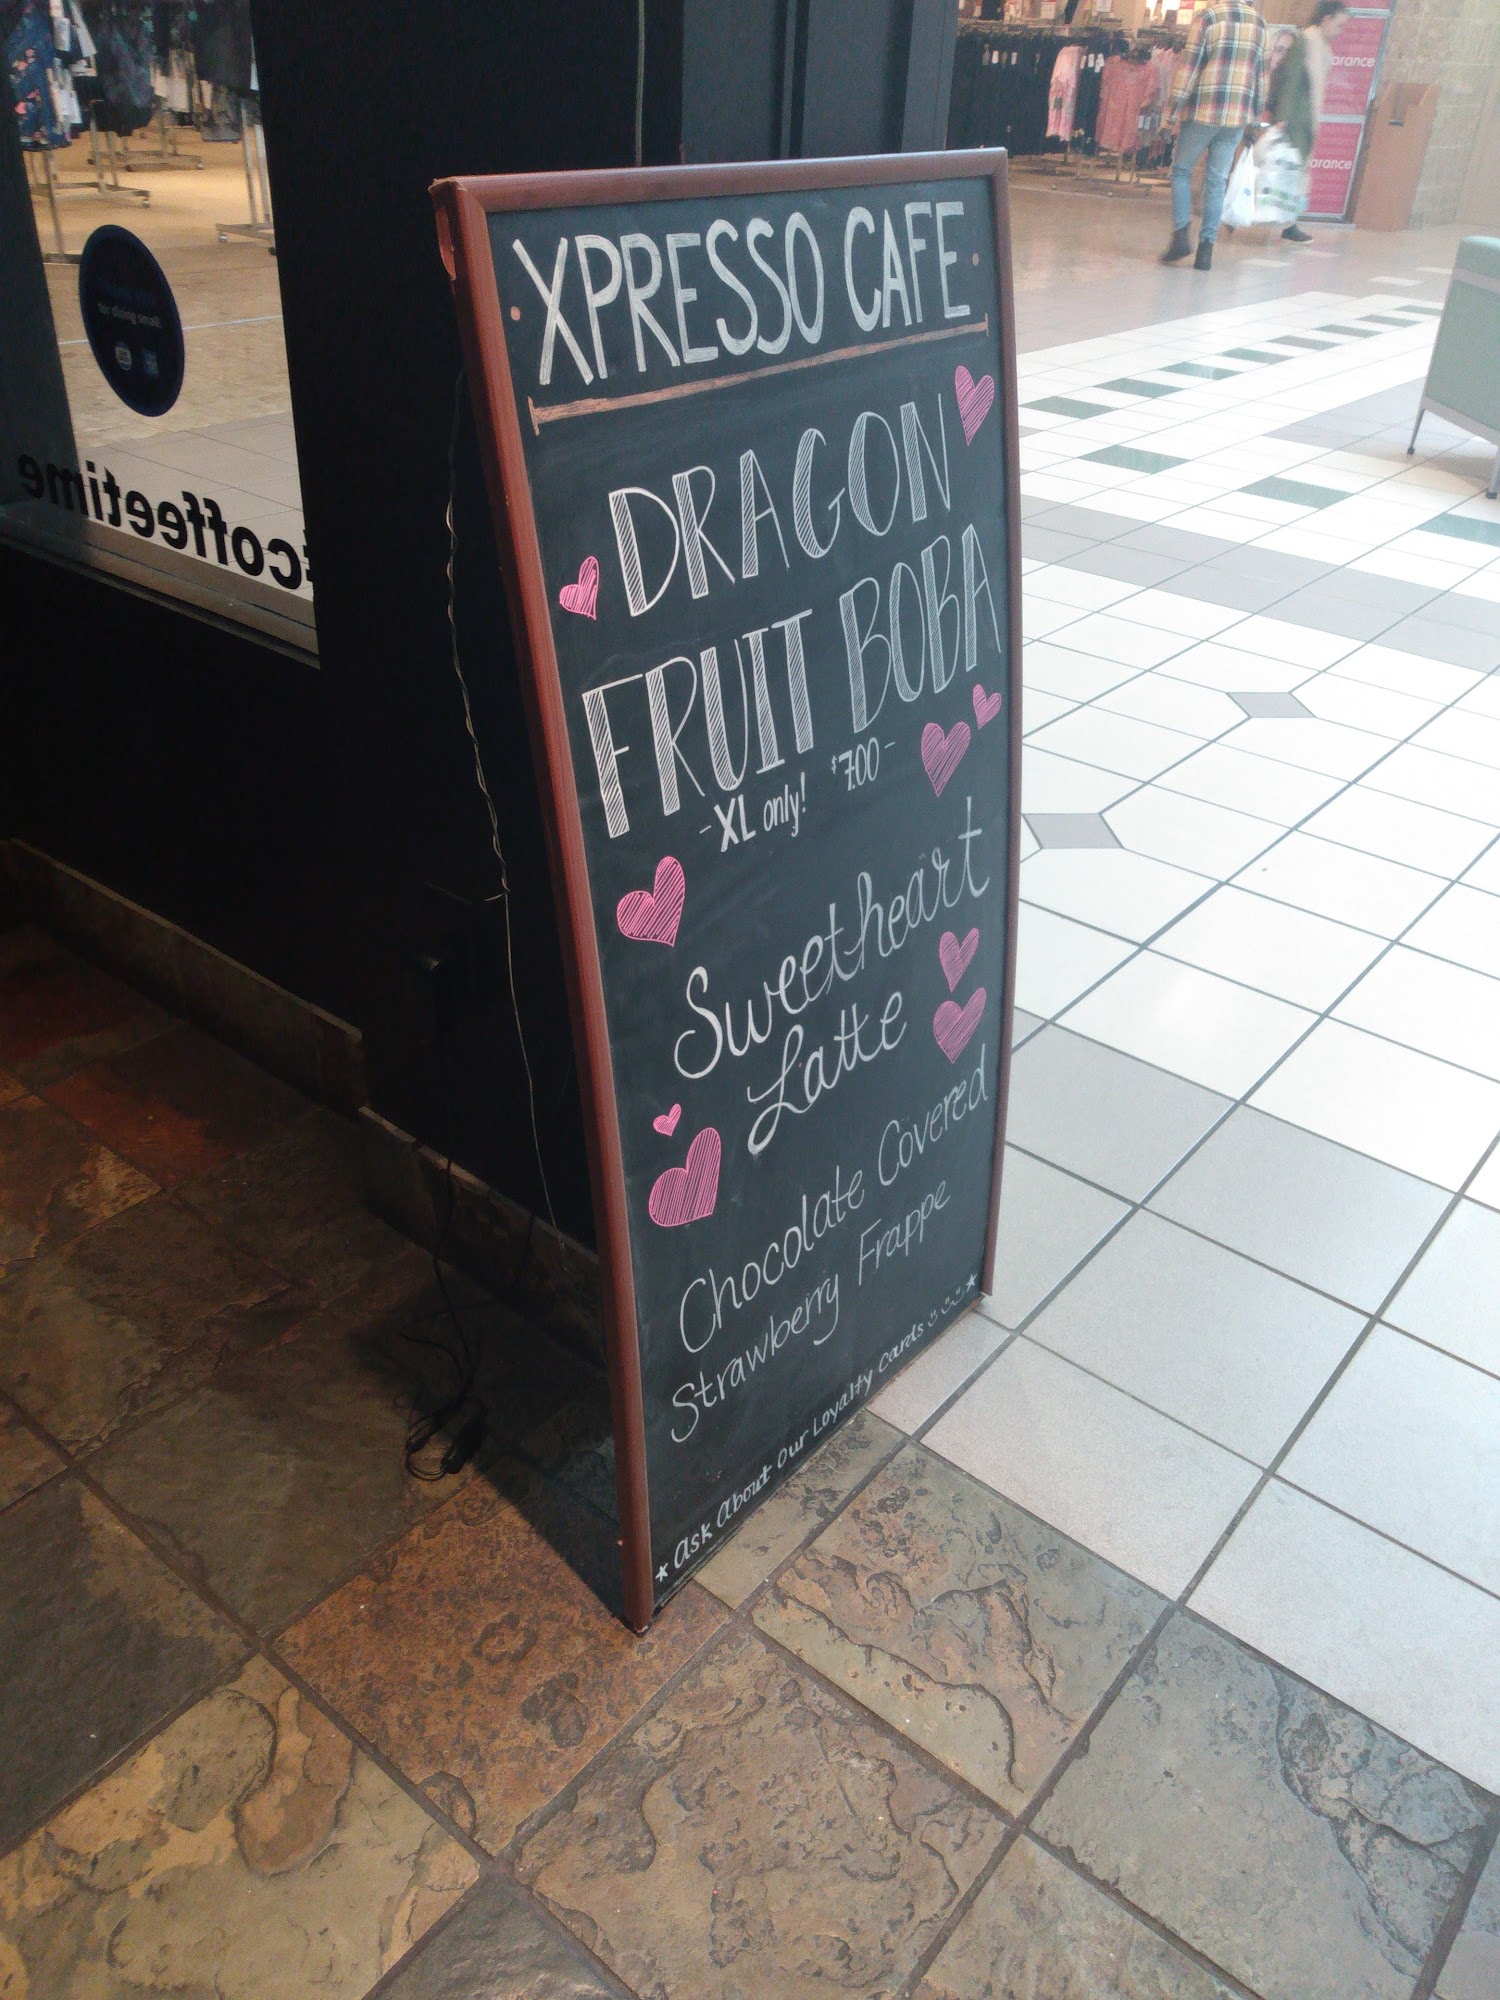 XPRESSO CAFE
DRAGON
FRUIT BOBA
-XL only! $7.00-
Sweetheart
Latte
Chocolate Covered
Strawberry Frappe
* Ask About Our Loyalty Cards *
for dining small.
#coffeetime
arance
arance